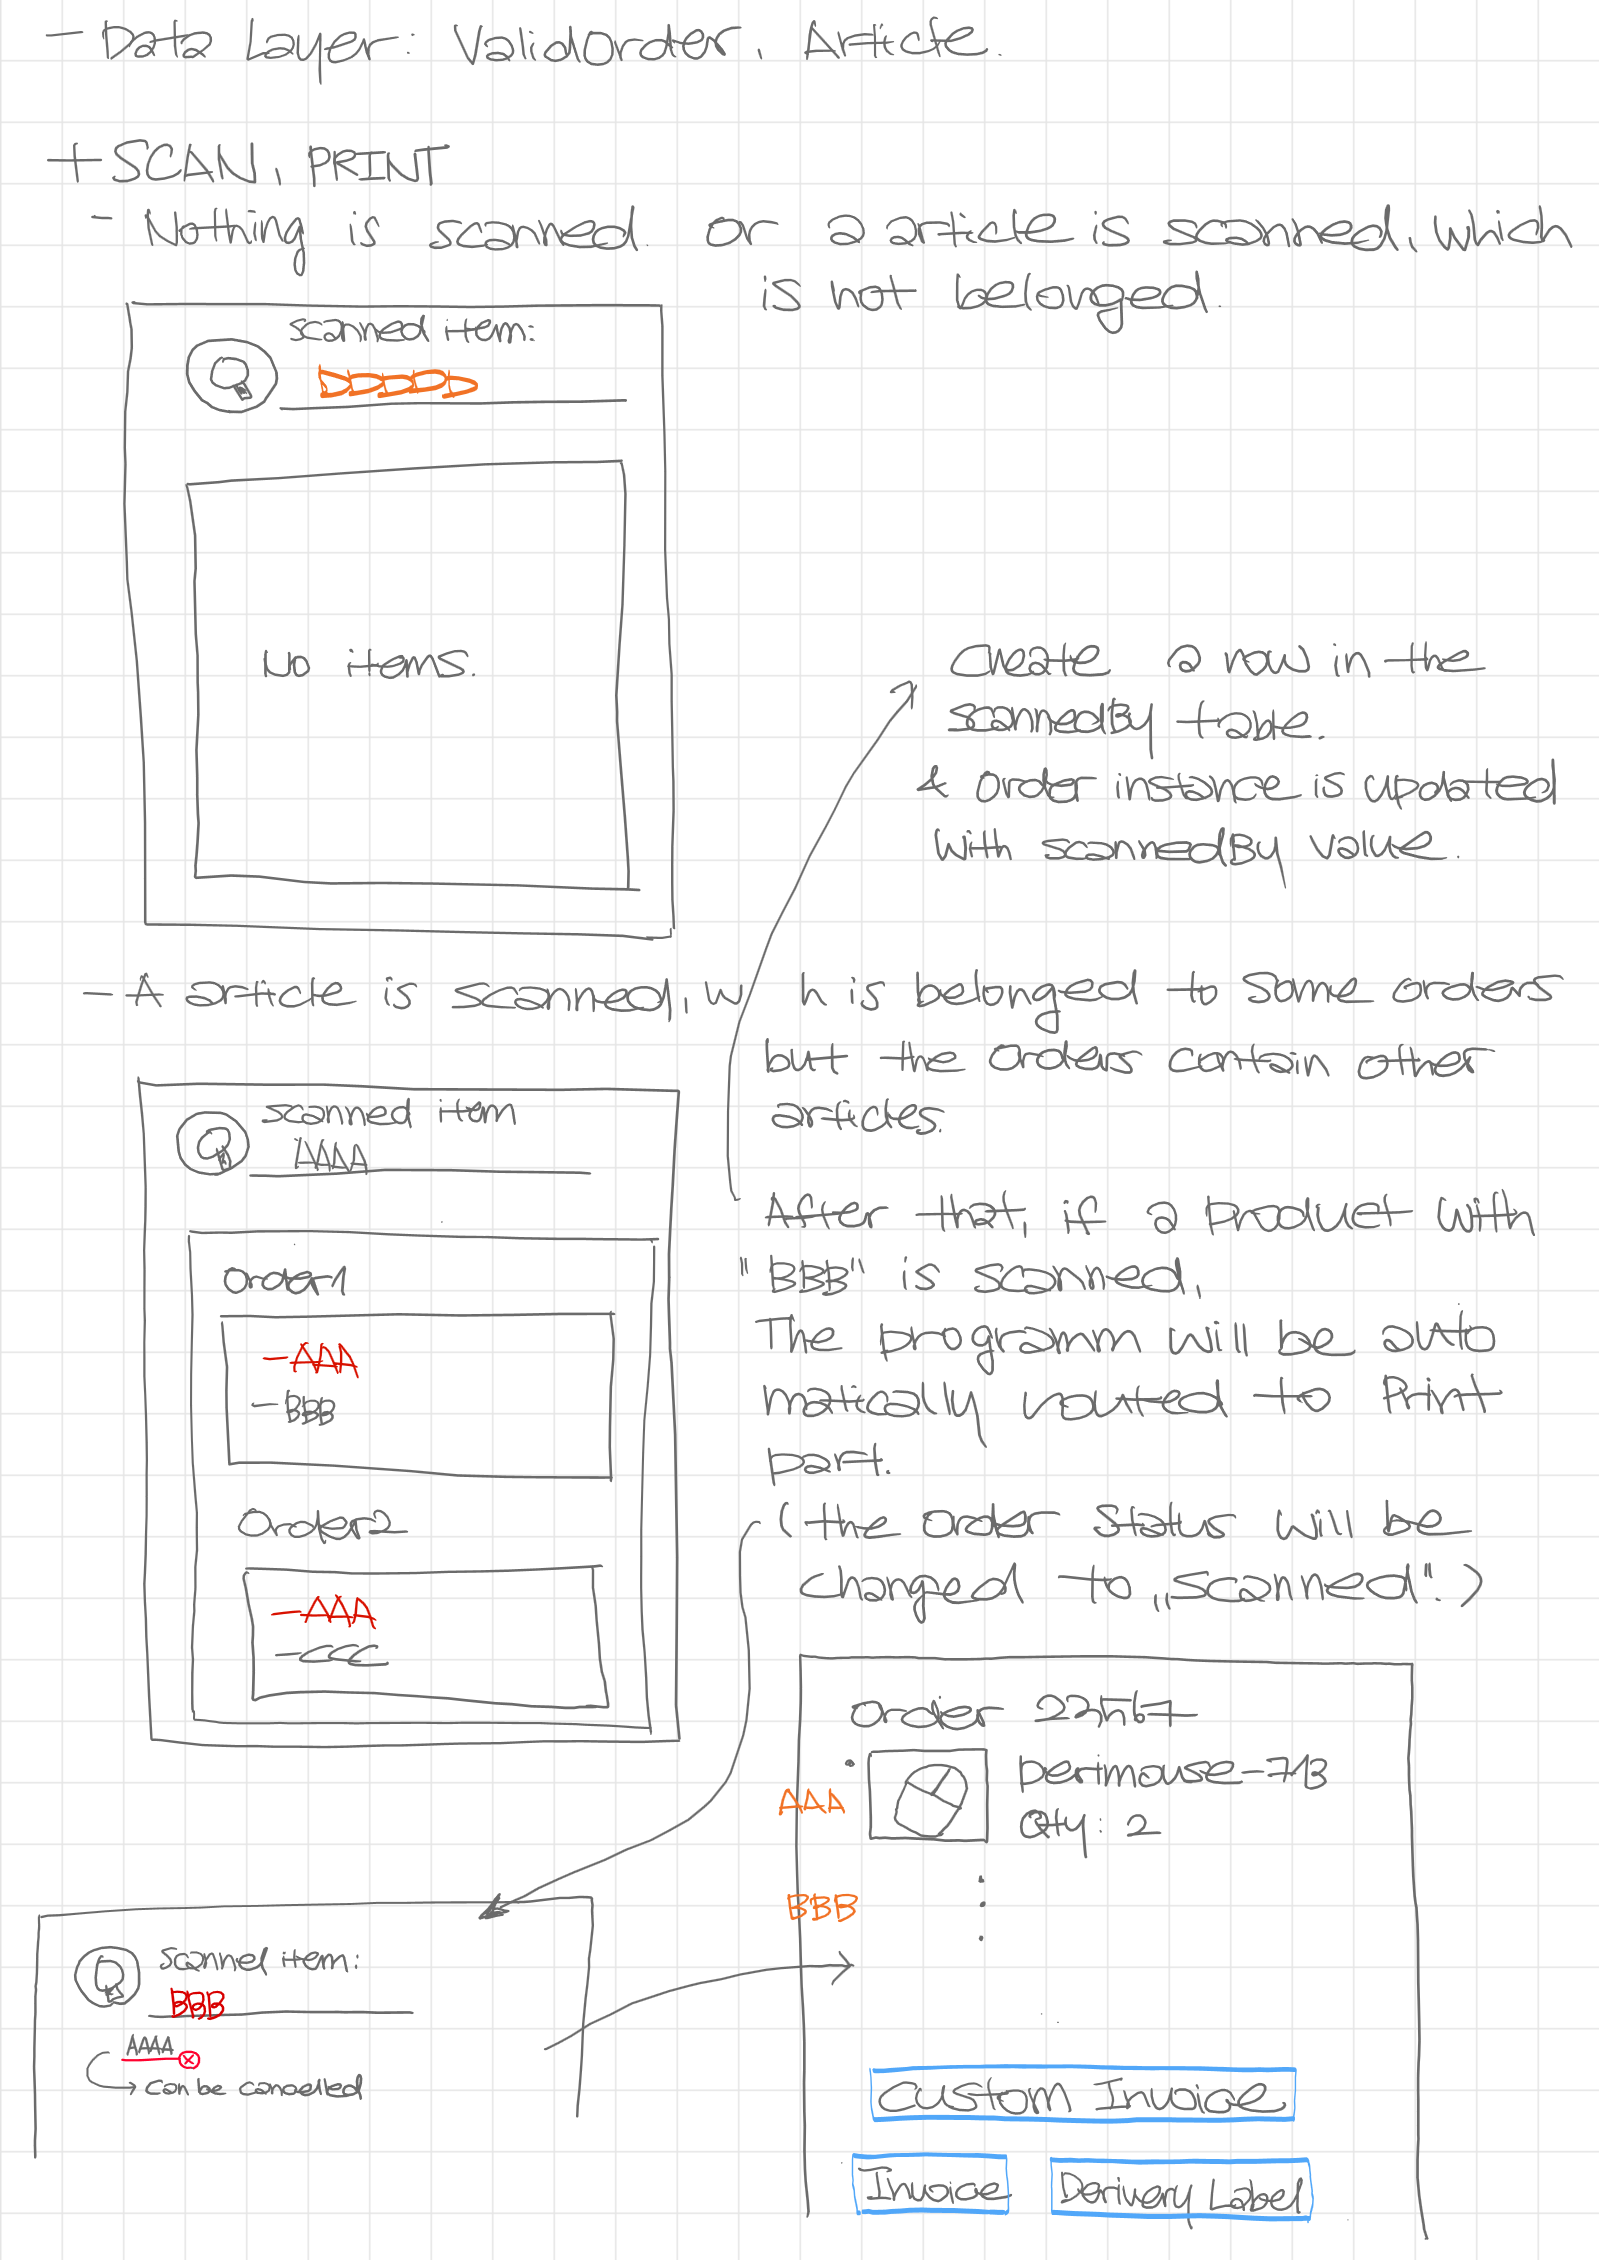 - Data Layer: ValidOrder, Article.
+ SCAN, PRINT
- Nothing is scanned or a article is scanned, which
is not belonged.
scanned item:
DDDDD
No items.
Create a row in the
scannedBy table.
& Order instance is updated
with scannedBy value.
- A article is scanned, w h is belonged to some orders
but the orders contain other
articles.
scanned item
AAAA
Order1
- AAA
- BBB
Order2
- AAA
- CCC
After that, if a product with
"BBB" is scanned,
The programm will be auto
matically routed to Print
part.
(the order status will be
changed to „scanned".)
Order 22567
AAA
perimouse-713
Qty: 2
BBB
scannel item:
BBB
AAAA
can be cancelled
Custom Invoice
Invoice
Derivery Label